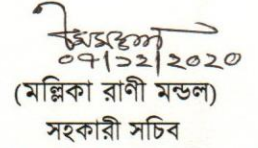 ০৭/১২/২০২০
(মল্লিকা রাণী মন্ডল)
সহকারী সচিব